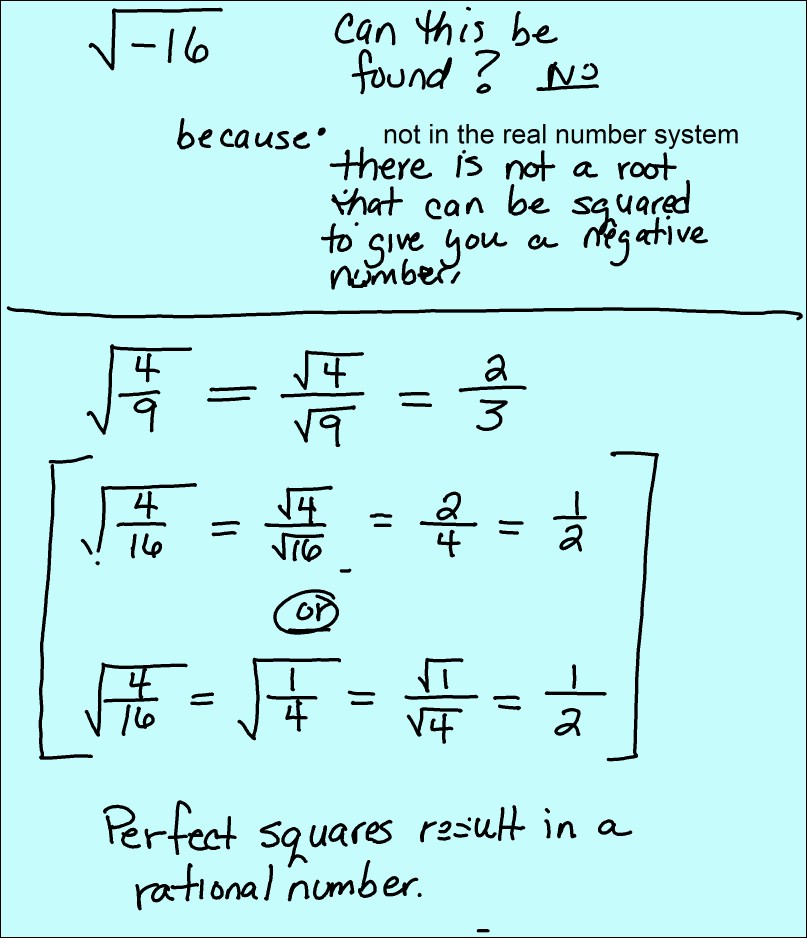 √-16 Can this be
found? No
because• not in the real number system
there is not a root
that can be squared
to give you a negative
number,
√(4/9) = √4/√9 = 2/3
[√(4/16) = √4/√16 = 2/4 = 1/2
or
√(4/16) = √(1/4) = √1/√4 = 1/2]
Perfect squares result in a
rational number.